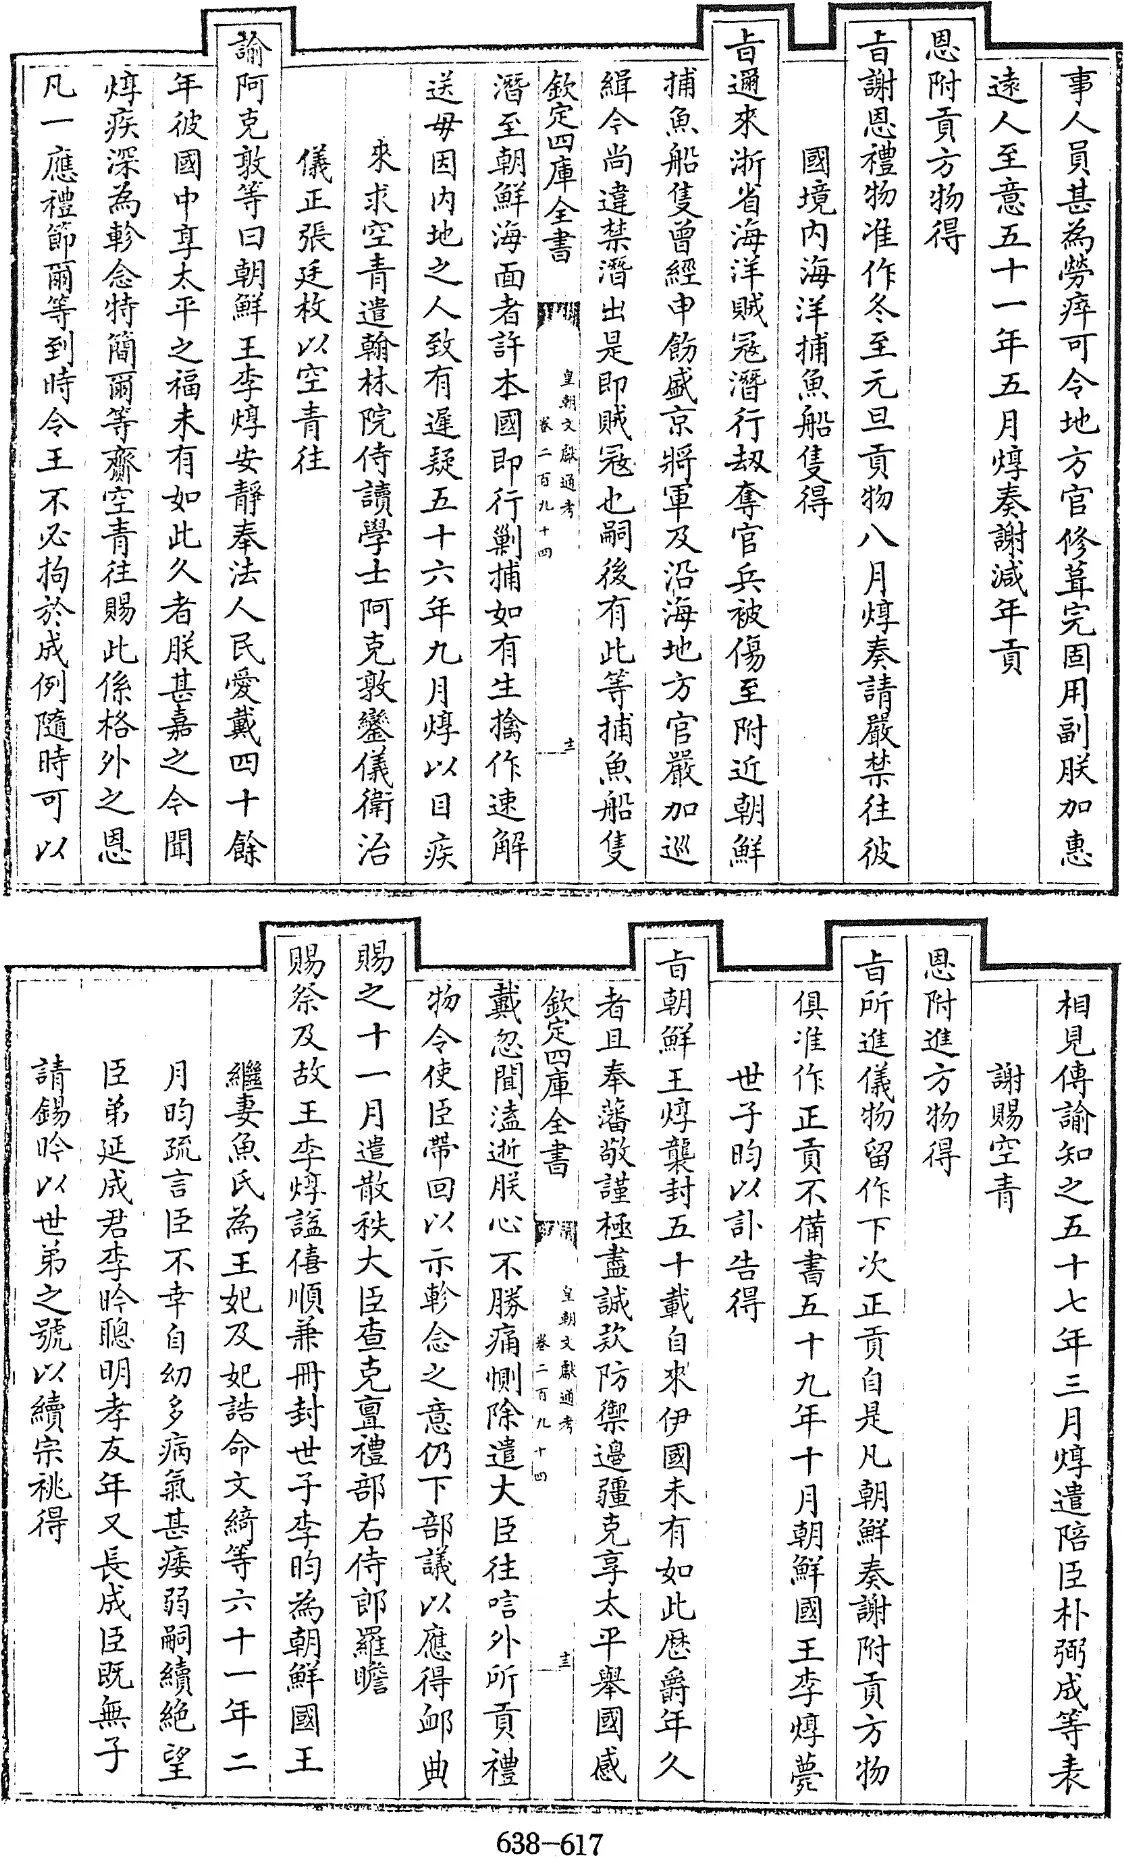 事人員甚為勞瘁可令地方官修葺完固用副朕加惠
遠人至意五十一年五月焞奏謝減年貢
恩附貢方物得
旨謝恩禮物准作冬至元旦貢物八月焞奏請嚴禁往彼
國境内海洋捕魚船隻得
旨邇來浙省海洋賊冦潛行刼奪官兵被傷至附近朝鮮
捕魚船隻曾經申飭盛京將軍及沿海地方官嚴加巡
緝今尚違禁潛出是即賊冦也嗣後有此等捕魚船隻
欽定四庫全書
皇朝文獻通考
卷二百九十四
十二
潛至朝鮮海面者許本國即行剿捕如有生擒作速解
送毋因内地之人致有遲疑五十六年九月焞以目疾
來求空青遣翰林院侍讀學士阿克敦鑾儀衛治
儀正張廷枚以空青往
諭阿克敦等曰朝鮮王李焞安靜奉法人民愛戴四十餘
年彼國中享太平之福未有如此久者朕甚嘉之今聞
焞疾深為軫念特簡爾等齎空青往賜此係格外之恩
凡一應禮節爾等到時令王不必拘於成例隨時可以
相見傳諭知之五十七年三月焞遣陪臣朴弼成等表
謝賜空青
恩附進方物得
旨所進儀物留作下次正貢自是凡朝鮮奏謝附貢方物
俱准作正貢不備書五十九年十月朝鮮國王李焞薨
世子昀以訃告得
旨朝鮮王焞襲封五十載自來伊國未有如此歴爵年久
者且奉藩敬謹極盡誠欵防禦邊疆克享太平舉國感
欽定四庫全書
皇朝文獻通考
卷二百九十四
十三
戴忽聞溘逝朕心不勝痛惻除遣大臣往唁外所貢禮
物令使臣帶回以示軫念之意仍下部議以應得䘏典
賜之十一月遣散秩大臣查克亶禮部右侍郎羅瞻
賜祭及故王李焞諡僖順兼冊封世子李昀為朝鮮國王
繼妻魚氏為王妃及妃誥命文綺等六十一年二
月昀疏言臣不幸自幼多病氣甚痿弱嗣續絶望
臣弟延成君李昑聰明孝友年又長成臣既無子
請錫昑以世弟之號以續宗祧得
638-617